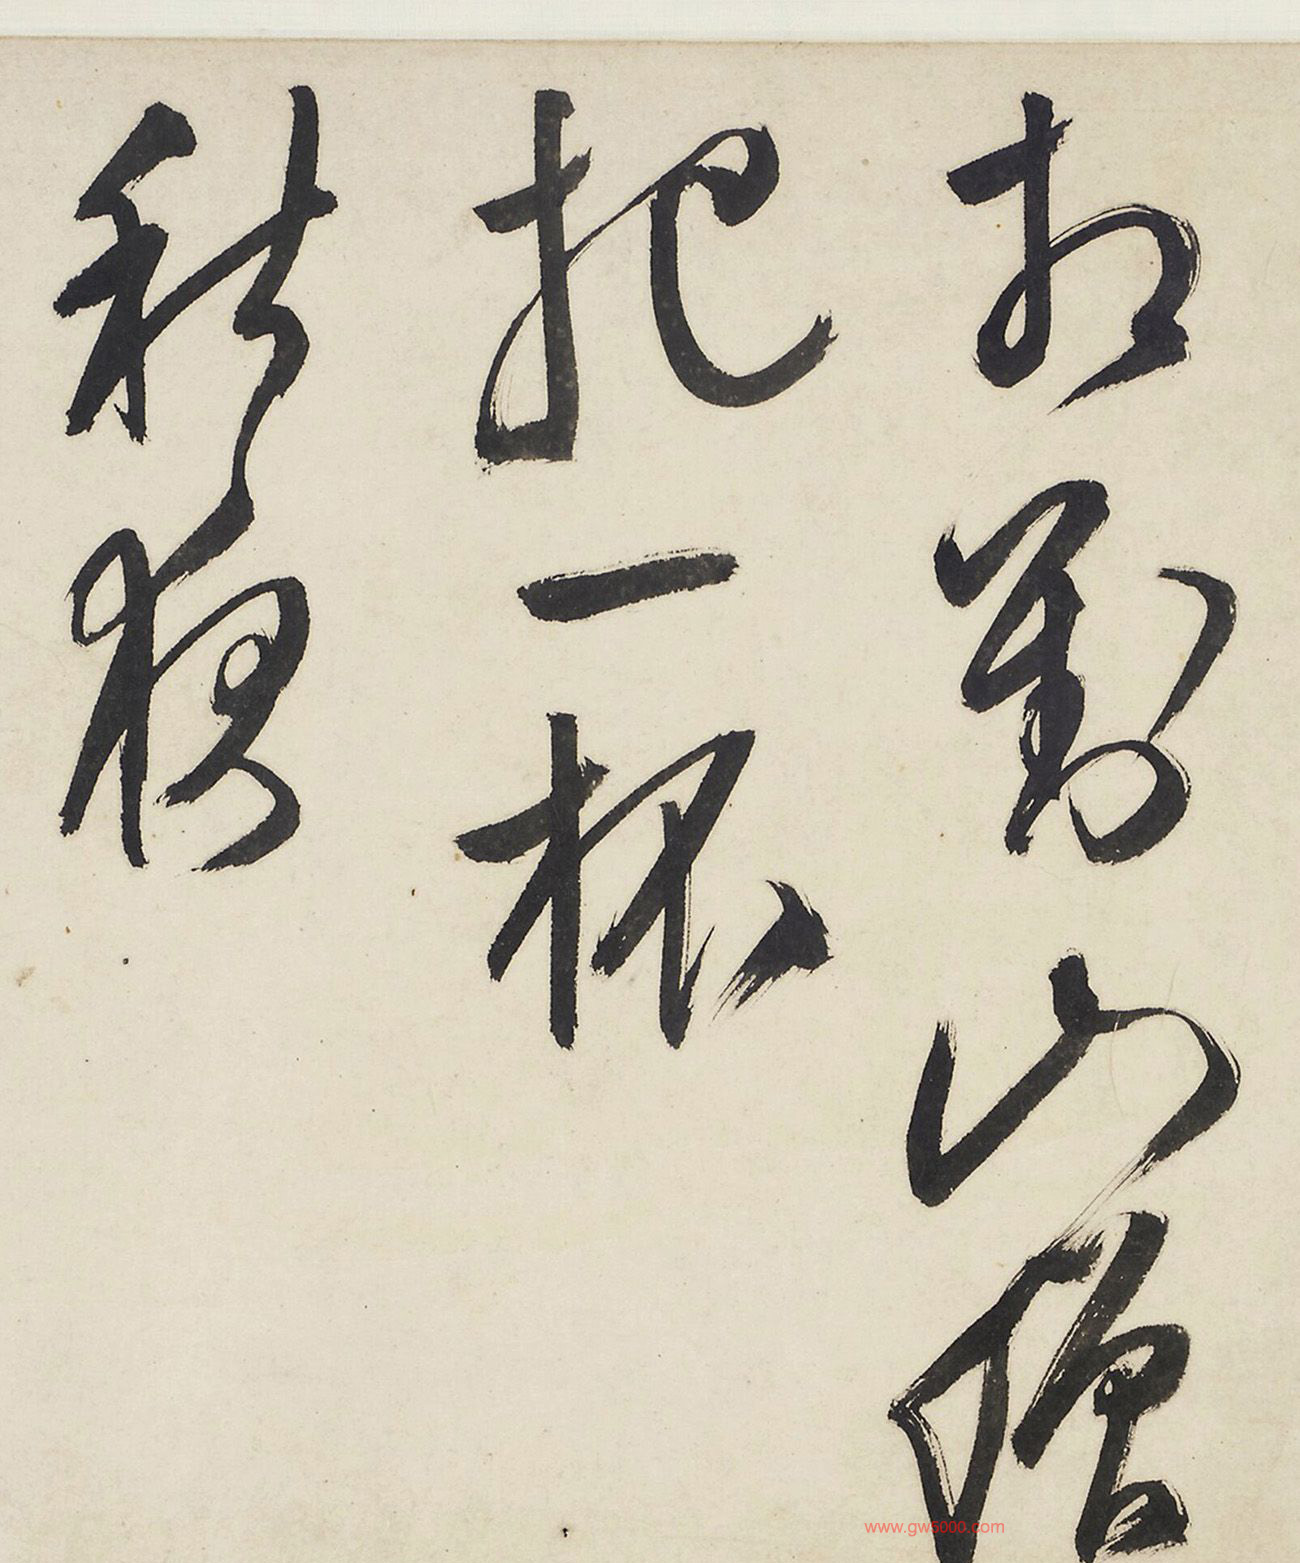 相對山僧
把一杯
秋
www.gw5000.com